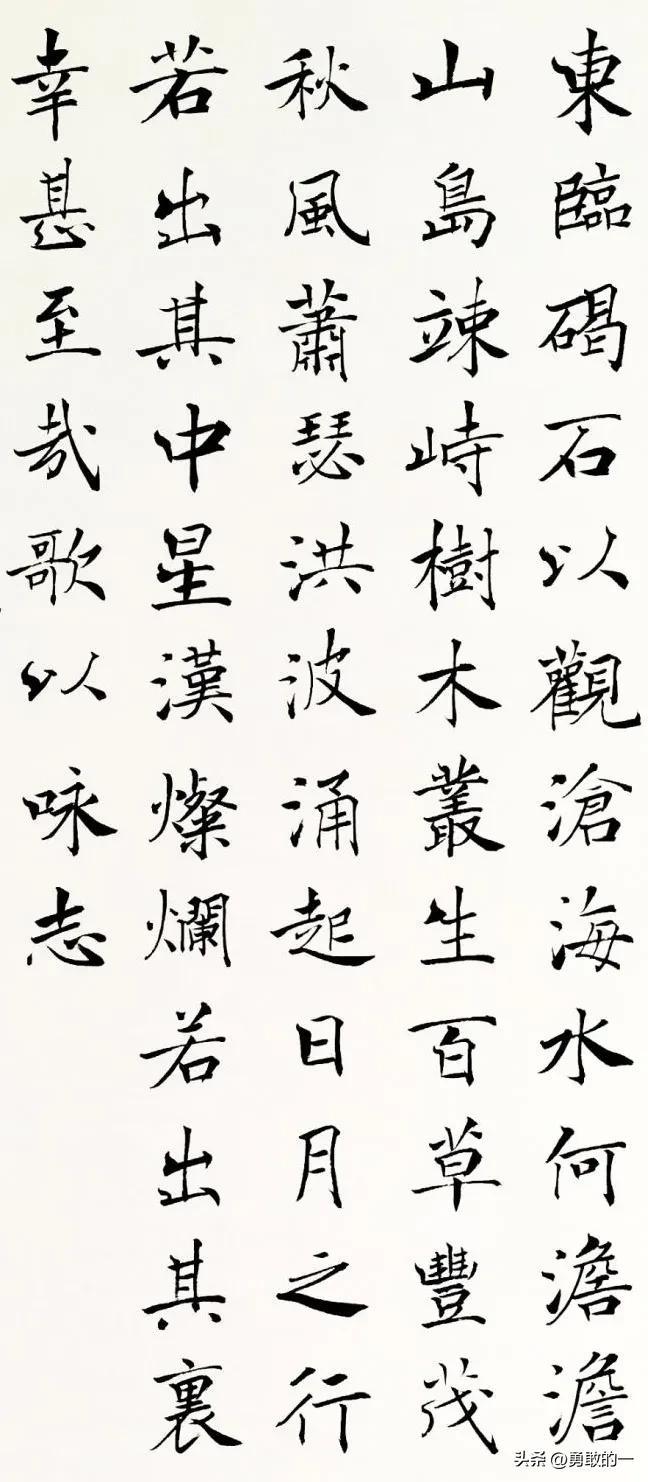 東臨碣石以觀滄海水何澹澹
山島竦峙樹木叢生百草豐茂
秋風蕭瑟洪波涌起日月之行
若出其中星漢燦爛若出其裏
幸甚至哉歌以咏志
头条 @勇敢的一